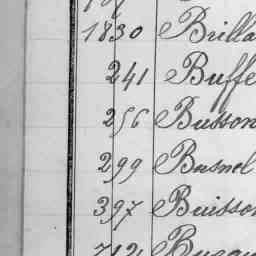 1830 Brilla
241 Buffe
256 Busson
299 Busnel
397 Buisson